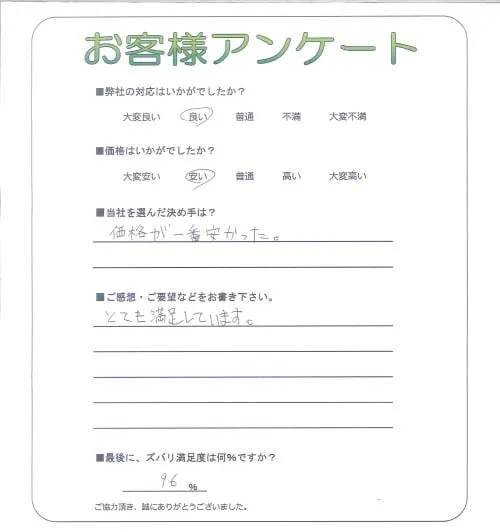 お客様アンケート
■弊社の対応はいかがでしたか？
大変良い 良い 普通 不満 大変不満
■価格はいかがでしたか？
大変安い 安い 普通 高い 大変高い
■当社を選んだ決め手は？
価格が一番安かった。
■ご感想・ご要望などをお書き下さい。
とても満足しています。
■最後に、ズバリ満足度は何%ですか？
96 %
ご協力頂き、誠にありがとうございました。